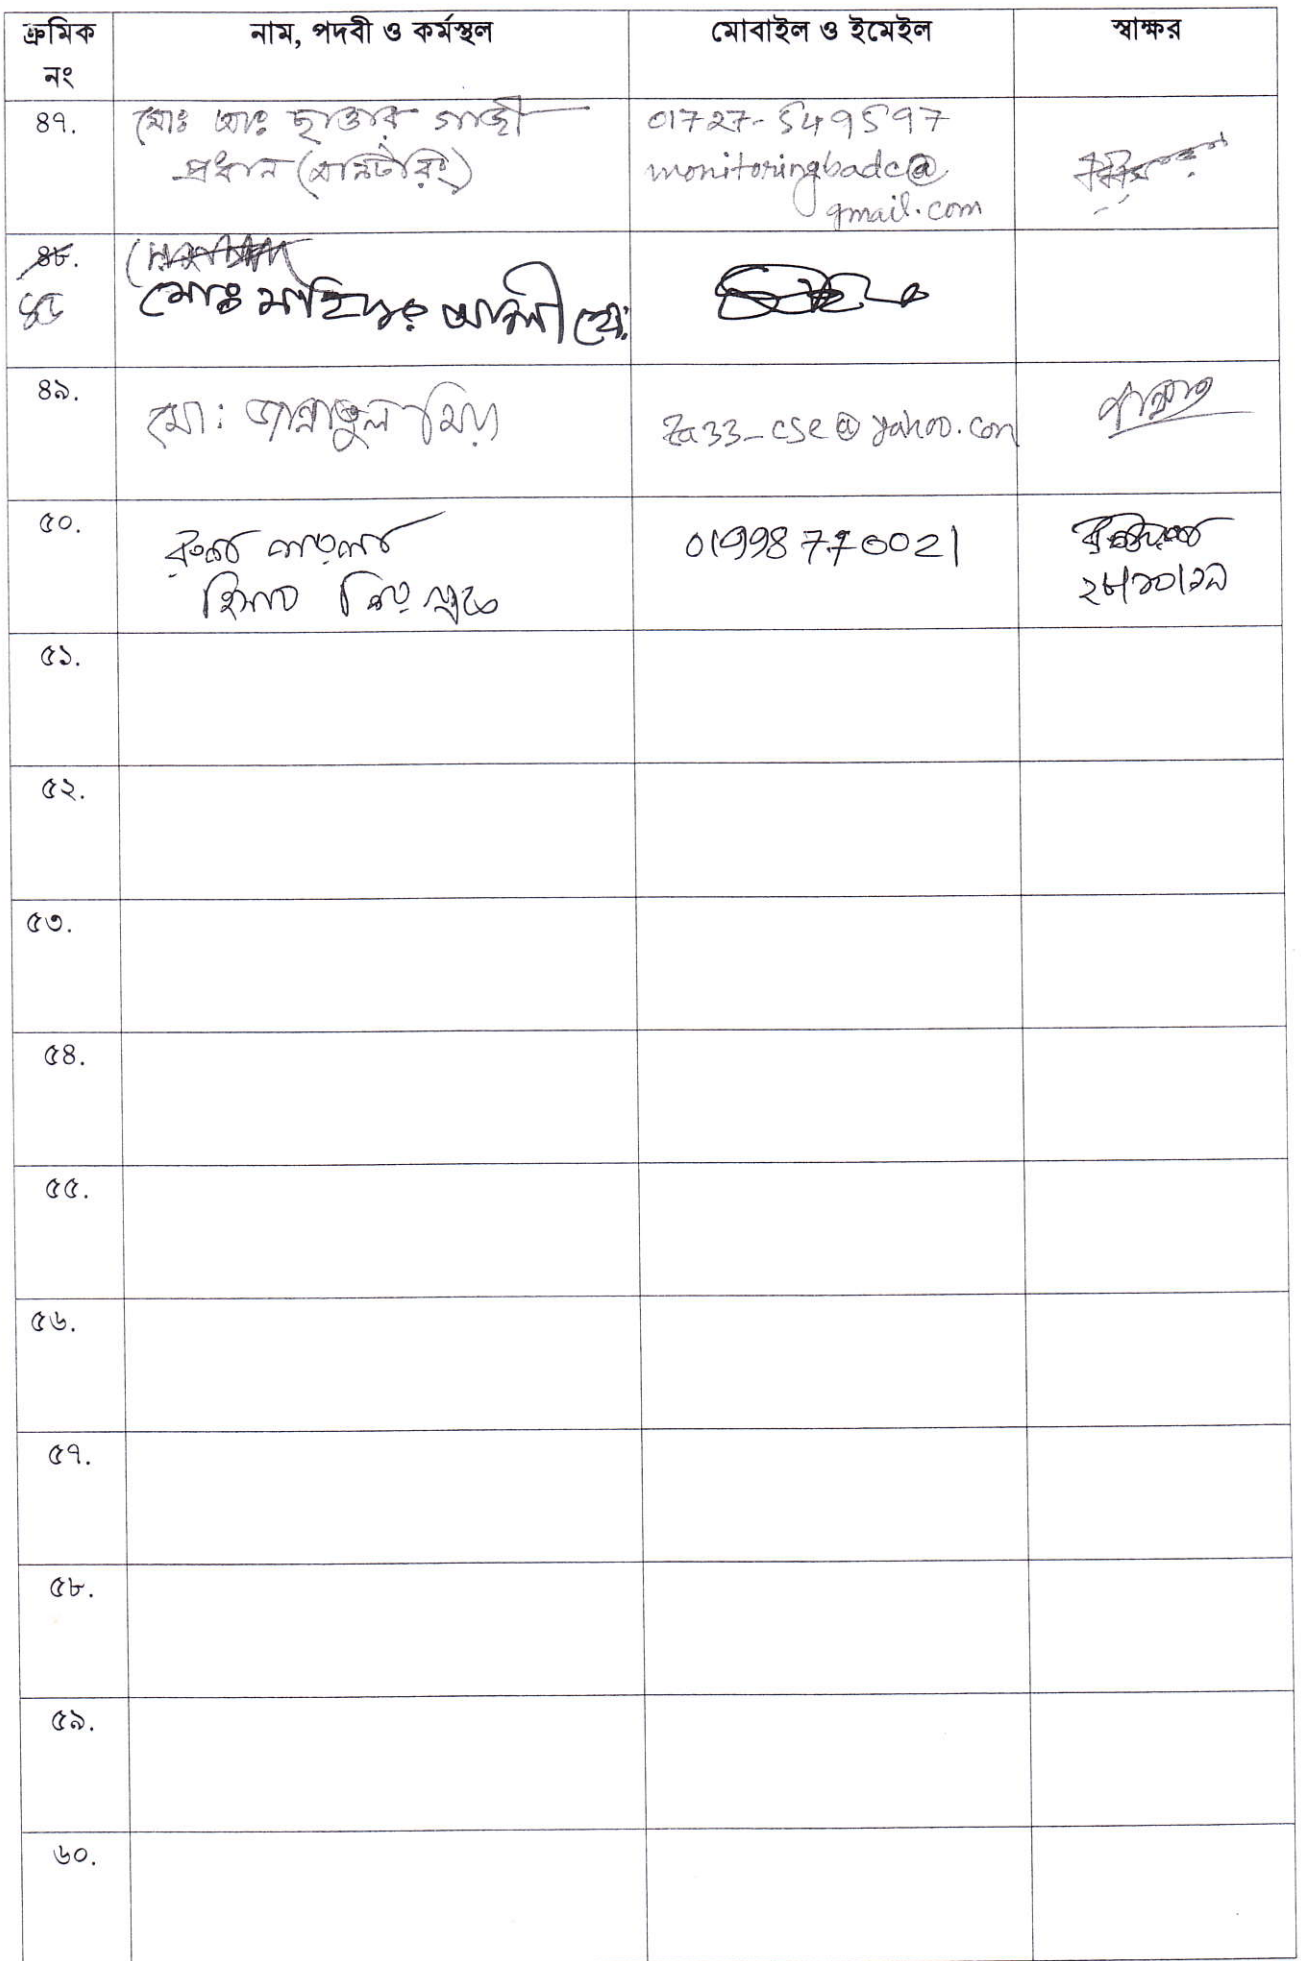 ক্রমিক নং নাম, পদবী ও কর্মস্থল মোবাইল ও ইমেইল স্বাক্ষর
৪৭.
মোঃ আঃ ছাত্তার গাজী
প্রধান (মনিটরিং)
01727-549597
monitoringbadc@
gmail.com
৪৮.
মোঃ মাহিদুর আলী
৪৯.
মো: জান্নাতুল মিয়া
za33_cse@yahoo.com
জান্নাত
৫০.
হিসাব
01998770021
২৮/১০/২১
৫১.
৫২.
৫৩.
৫৪.
৫৫.
৫৬.
৫৭.
৫৮.
৫৯.
৬০.